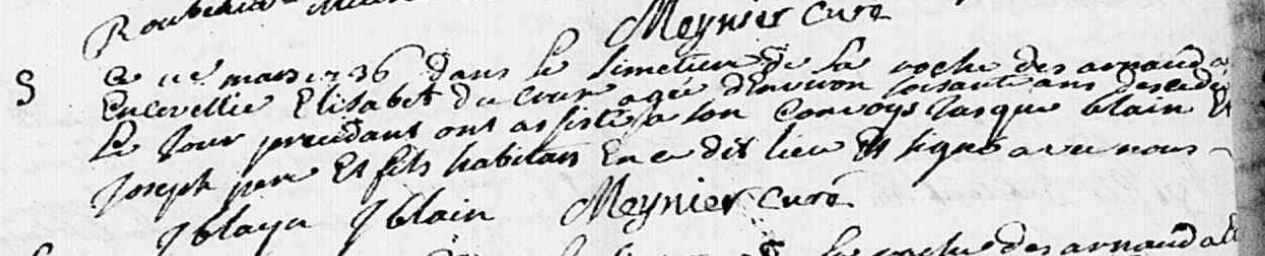 Meynier Curé
S Ce 11e mars 1736 dans le simetiere de la roche des arnauds a
Encevellie Elisabet du cour agée d'environ soisante ans decedée
le jour precedant ont assisté a son Convoys Jasque blain Et
Joseph pere Et fils habitans En ce dit lieu Et signé avec nous
J blayn J blain Meynier Curé
la roche des arnauds a